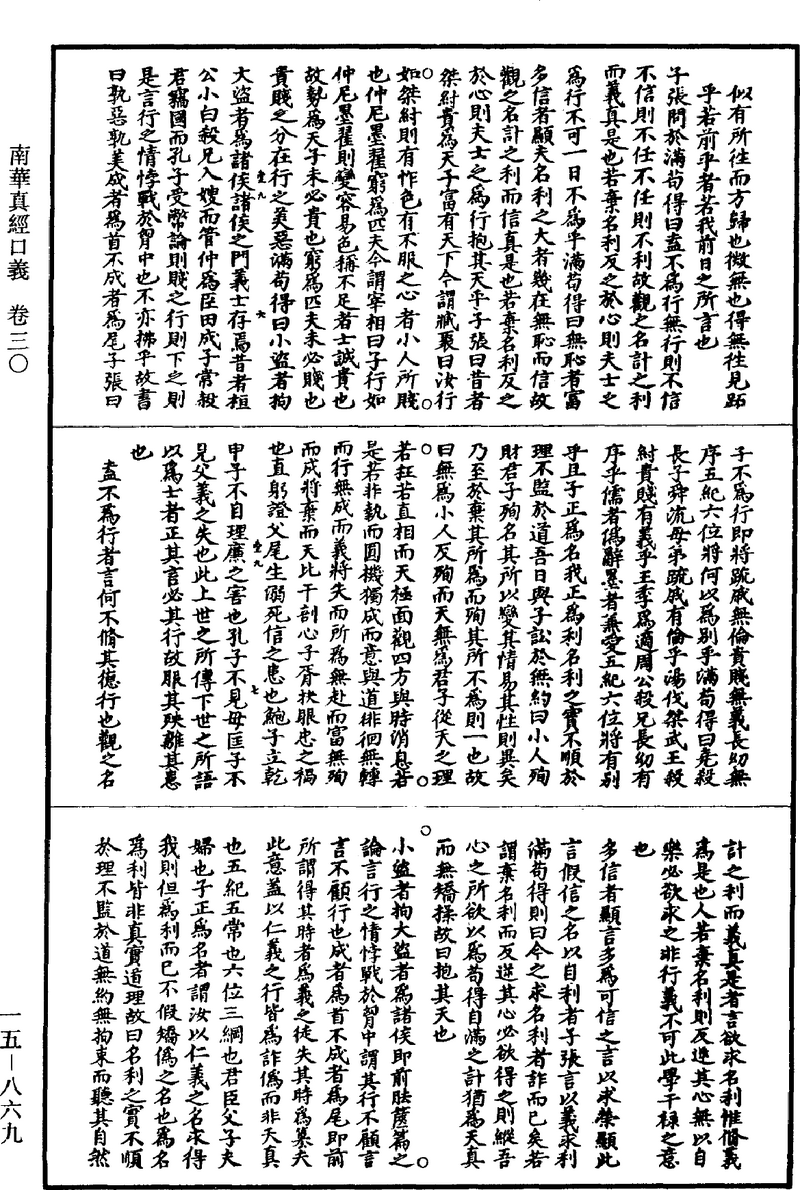 南華真經口義　卷三〇
似有所往而方歸也微無也得無往見跖
乎若前乎者若我前日之所言也
子張問於滿苟得曰盍不為行無行則不信
不信則不任不任則不利故觀之名計之利
而義真是也若棄名利反之於心則夫士之
為行不可一日不為乎滿苟得曰無恥者富
多信者顯夫名利之大者幾在無恥而信故
觀之名計之利而信真是也若棄名利反之
於心則夫士之為行抱其天乎子張曰昔者
桀紂貴為天子富有天下今謂臧聚曰汝行
如桀紂則有怍色有不服之心者小人所賤
也仲尼墨翟窮為匹夫今謂宰相曰子行如
仲尼墨翟則變容易色稱不足者士誠貴也
故勢為天子未必貴也窮為匹夫未必賤也
貴賤之分在行之美惡滿苟得曰小盜者拘
大盜者為諸侯諸侯之門義士存焉昔者桓
公小白殺兄入嫂而管仲為臣田成子常殺
君竊國而孔子受幣論則賤之行則下之則
是言行之情悖戰於胷中也不亦拂乎故書
曰孰惡孰美成者為首不成者為尾子張曰
子不為行即將疏戚無倫貴賤無義長幼無
序五紀六位將何以為別乎滿苟得曰堯殺
長子舜流母弟疏戚有倫乎湯伐桀武王殺
紂貴賤有義乎王季為適周公殺兄長幼有
序乎儒者偽辭墨者兼愛五紀六位將有別
乎且子正為名我正為利名利之實不順於
理不監於道吾日與子訟於無約曰小人殉
財君子殉名其所以變其情易其性則異矣
乃至於棄其所為而殉其所不為則一也故
曰無為小人反殉而天無為君子從天之理
若枉若直相而天極面觀四方與時消息若
是若非執而圓機獨成而意與道徘徊無轉
而行無成而義將失而所為無赴而富無殉
而成將棄而天比干剖心子胥抉眼忠之禍
也直躬證父尾生溺死信之患也鮑子立乾
申子不自理廉之害也孔子不見母匡子不
見父義之失也此上世之所傳下世之所語
以為士者正其言必其行故服其殃離其患
也
盍不為行者言何不脩其德行也觀之名
計之利而義真是者言欲求名利惟脩義
為是也人若棄名利則反逆其心無以自
樂必欲求之非行義不可此學干祿之意
也
多信者顯言多為可信之言以求榮顯此
言假信之名以自利者子張言以義求利
滿苟得則曰今之求名利者詐而已矣若
謂棄名利而反逆其心必欲得之則縱吾
心之所欲以為苟得自滿之計猶為天真
而無矯揉故曰抱其天也
小盜者拘大盜者為諸侯即前胠篋篇之
論言行之情悖戰於胷中謂其行不顧言
言不顧行也成者為首不成者為尾即前
所謂得其時者為義之徒失其時為篡夫
此意蓋以仁義之行皆為詐偽而非天真
也五紀五常也六位三綱也君臣父子夫
婦也子正為名者謂汝以仁義之名求得
我則但為利而已不假矯偽之名也為名
為利皆非真實道理故曰名利之實不順
於理不監於道無約無拘束而聽其自然
一五—八六九